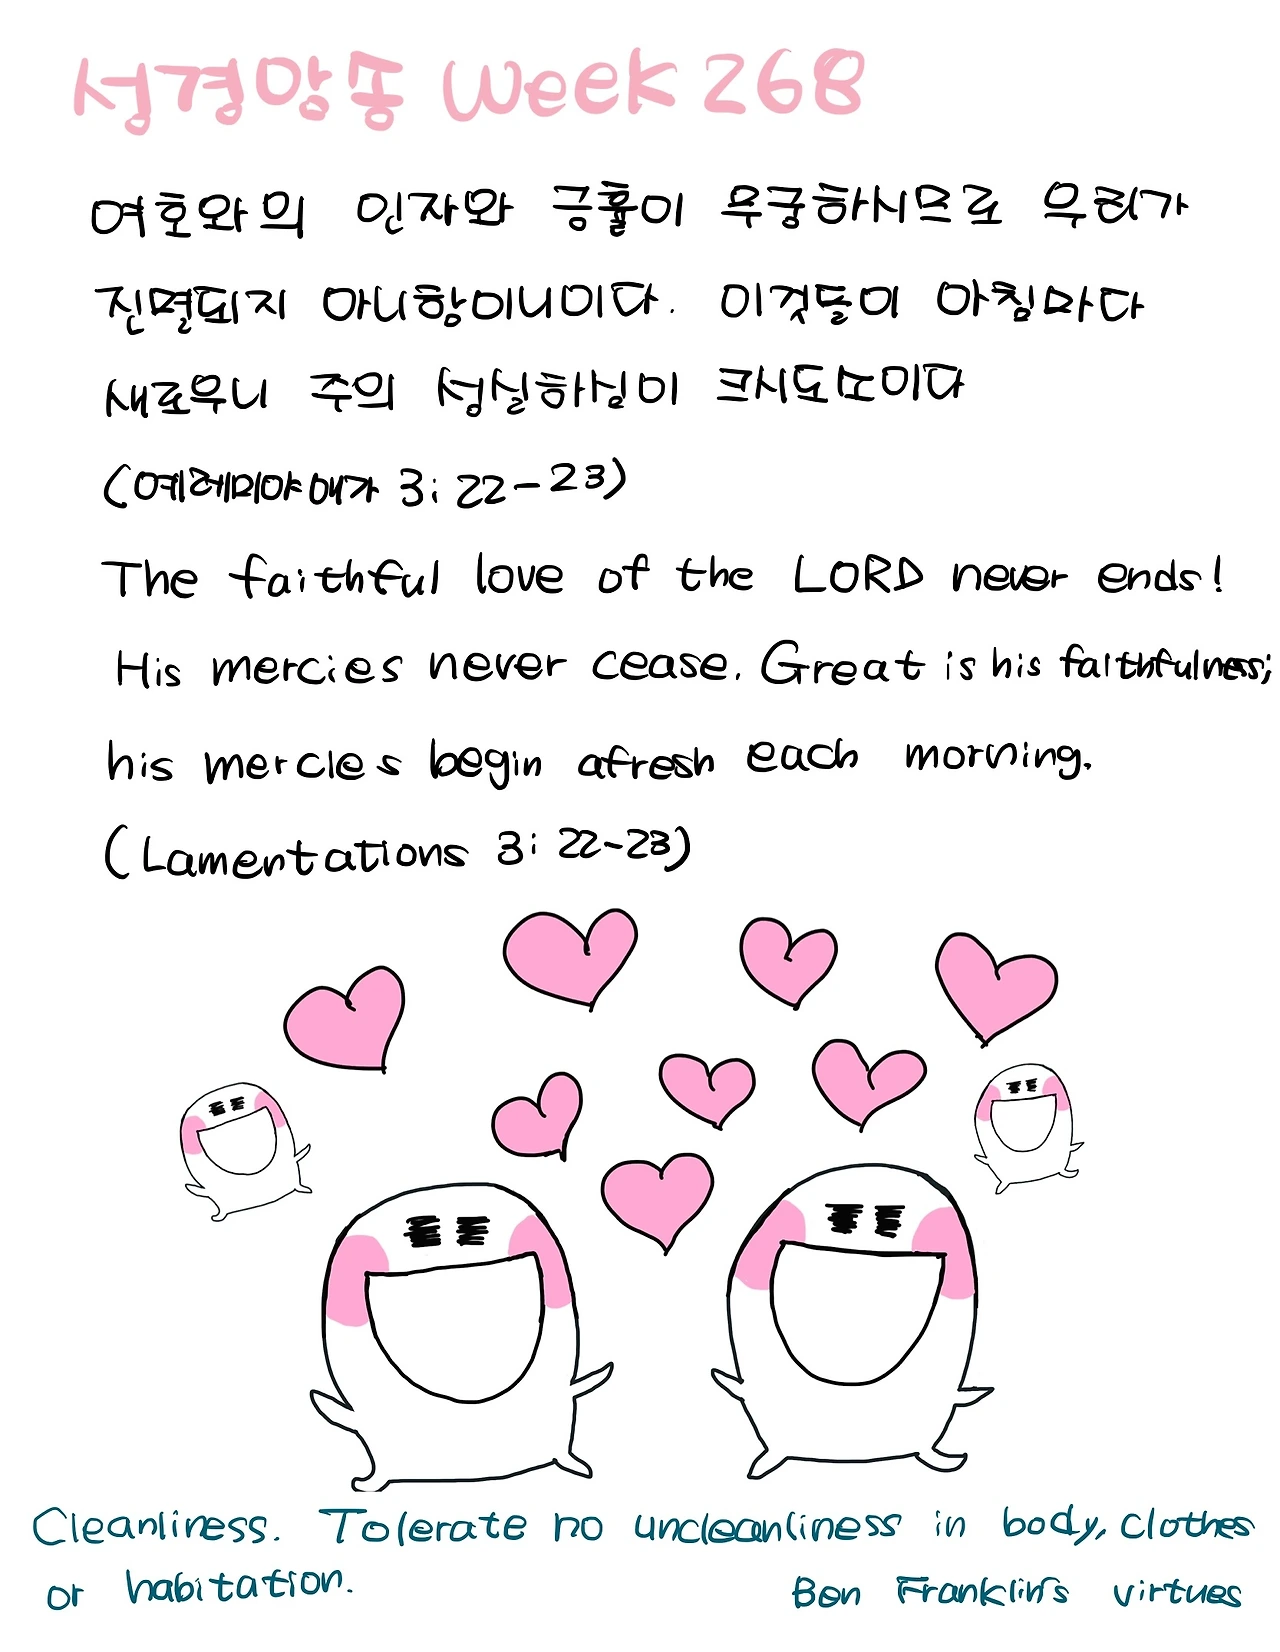 서경암송 Week 268
여호와의 인자와 긍휼이 무궁하시므로 우리가
진멸되지 아니함이니이다. 이것들이 아침마다
새로우니 주의 성실하심이 크시도소이다
(예레미야애가 3:22-23)
The faithful love of the LORD never ends!
His mercies never cease. Great is his faithfulness;
his mercies begin afresh each morning.
(Lamentations 3:22-23)
Cleanliness. Tolerate no uncleanliness in body, clothes
or habitation.
Ben Franklin's virtues